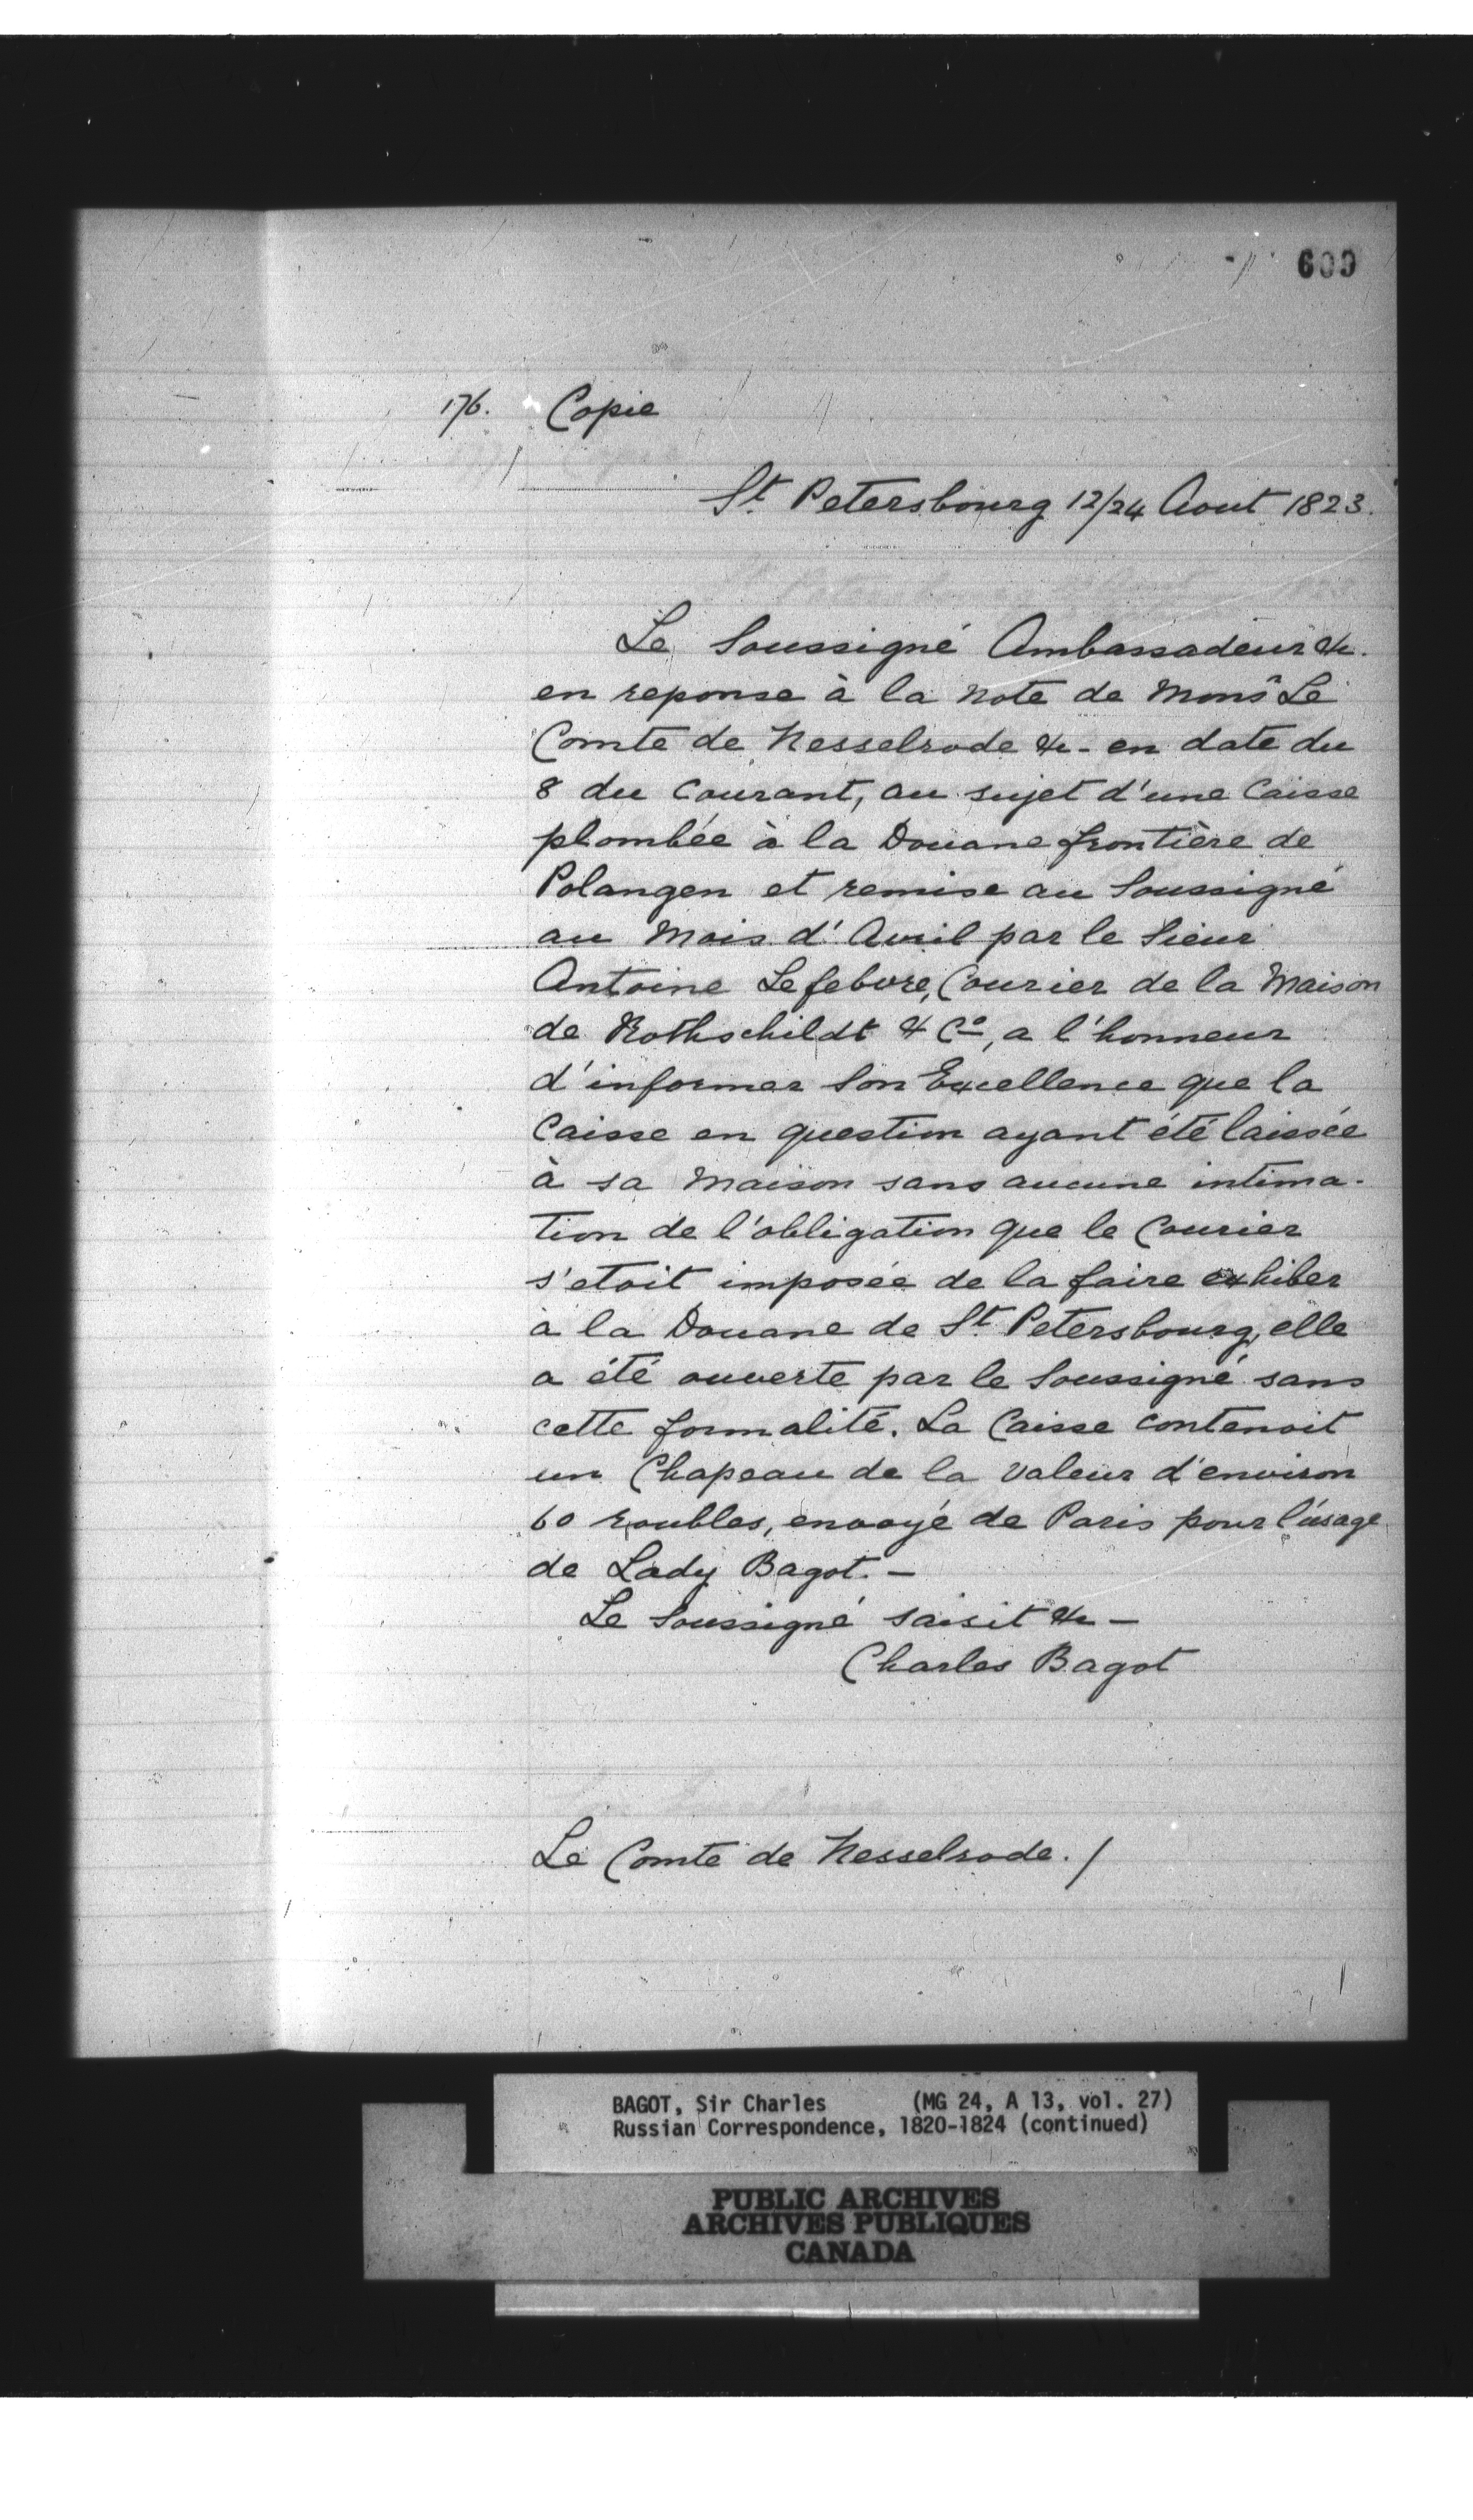 600
176. Copie
St Petersbourg 12/24 Aout 1823.
Le Soussigné Ambassadeur &c.
en reponse à la note de Monsr Le
Comte de Nesselrode &c - en date du
8 du Courant, au sujet d'une Caisse
plombée à la Douane frontière de
Polangen et remise au Soussigné
au Mois d'Avril par le Sieur
Antoine Lefebvre, Courier de la Maison
de Rothschildt & Co, a l'honneur
d'informer Son Excellence que la
Caisse en question ayant été laissée
à sa Maison sans aucune intima-
tion de l'obligation que le Courier
s'etoit imposée de la faire exhiber
à la Douane de St Petersbourg, elle
a été ouverte par le Soussigné sans
cette formalité. La Caisse contenoit
un Chapeau de la valeur d'environ
60 roubles, envoyé de Paris pour l'usage
de Lady Bagot. —
Le Soussigné saisit &c —
Charles Bagot
Le Comte de Nesselrode. /
BAGOT, Sir Charles (MG 24, A 13, vol. 27)
Russian Correspondence, 1820-1824 (continued)
PUBLIC ARCHIVES
ARCHIVES PUBLIQUES
CANADA